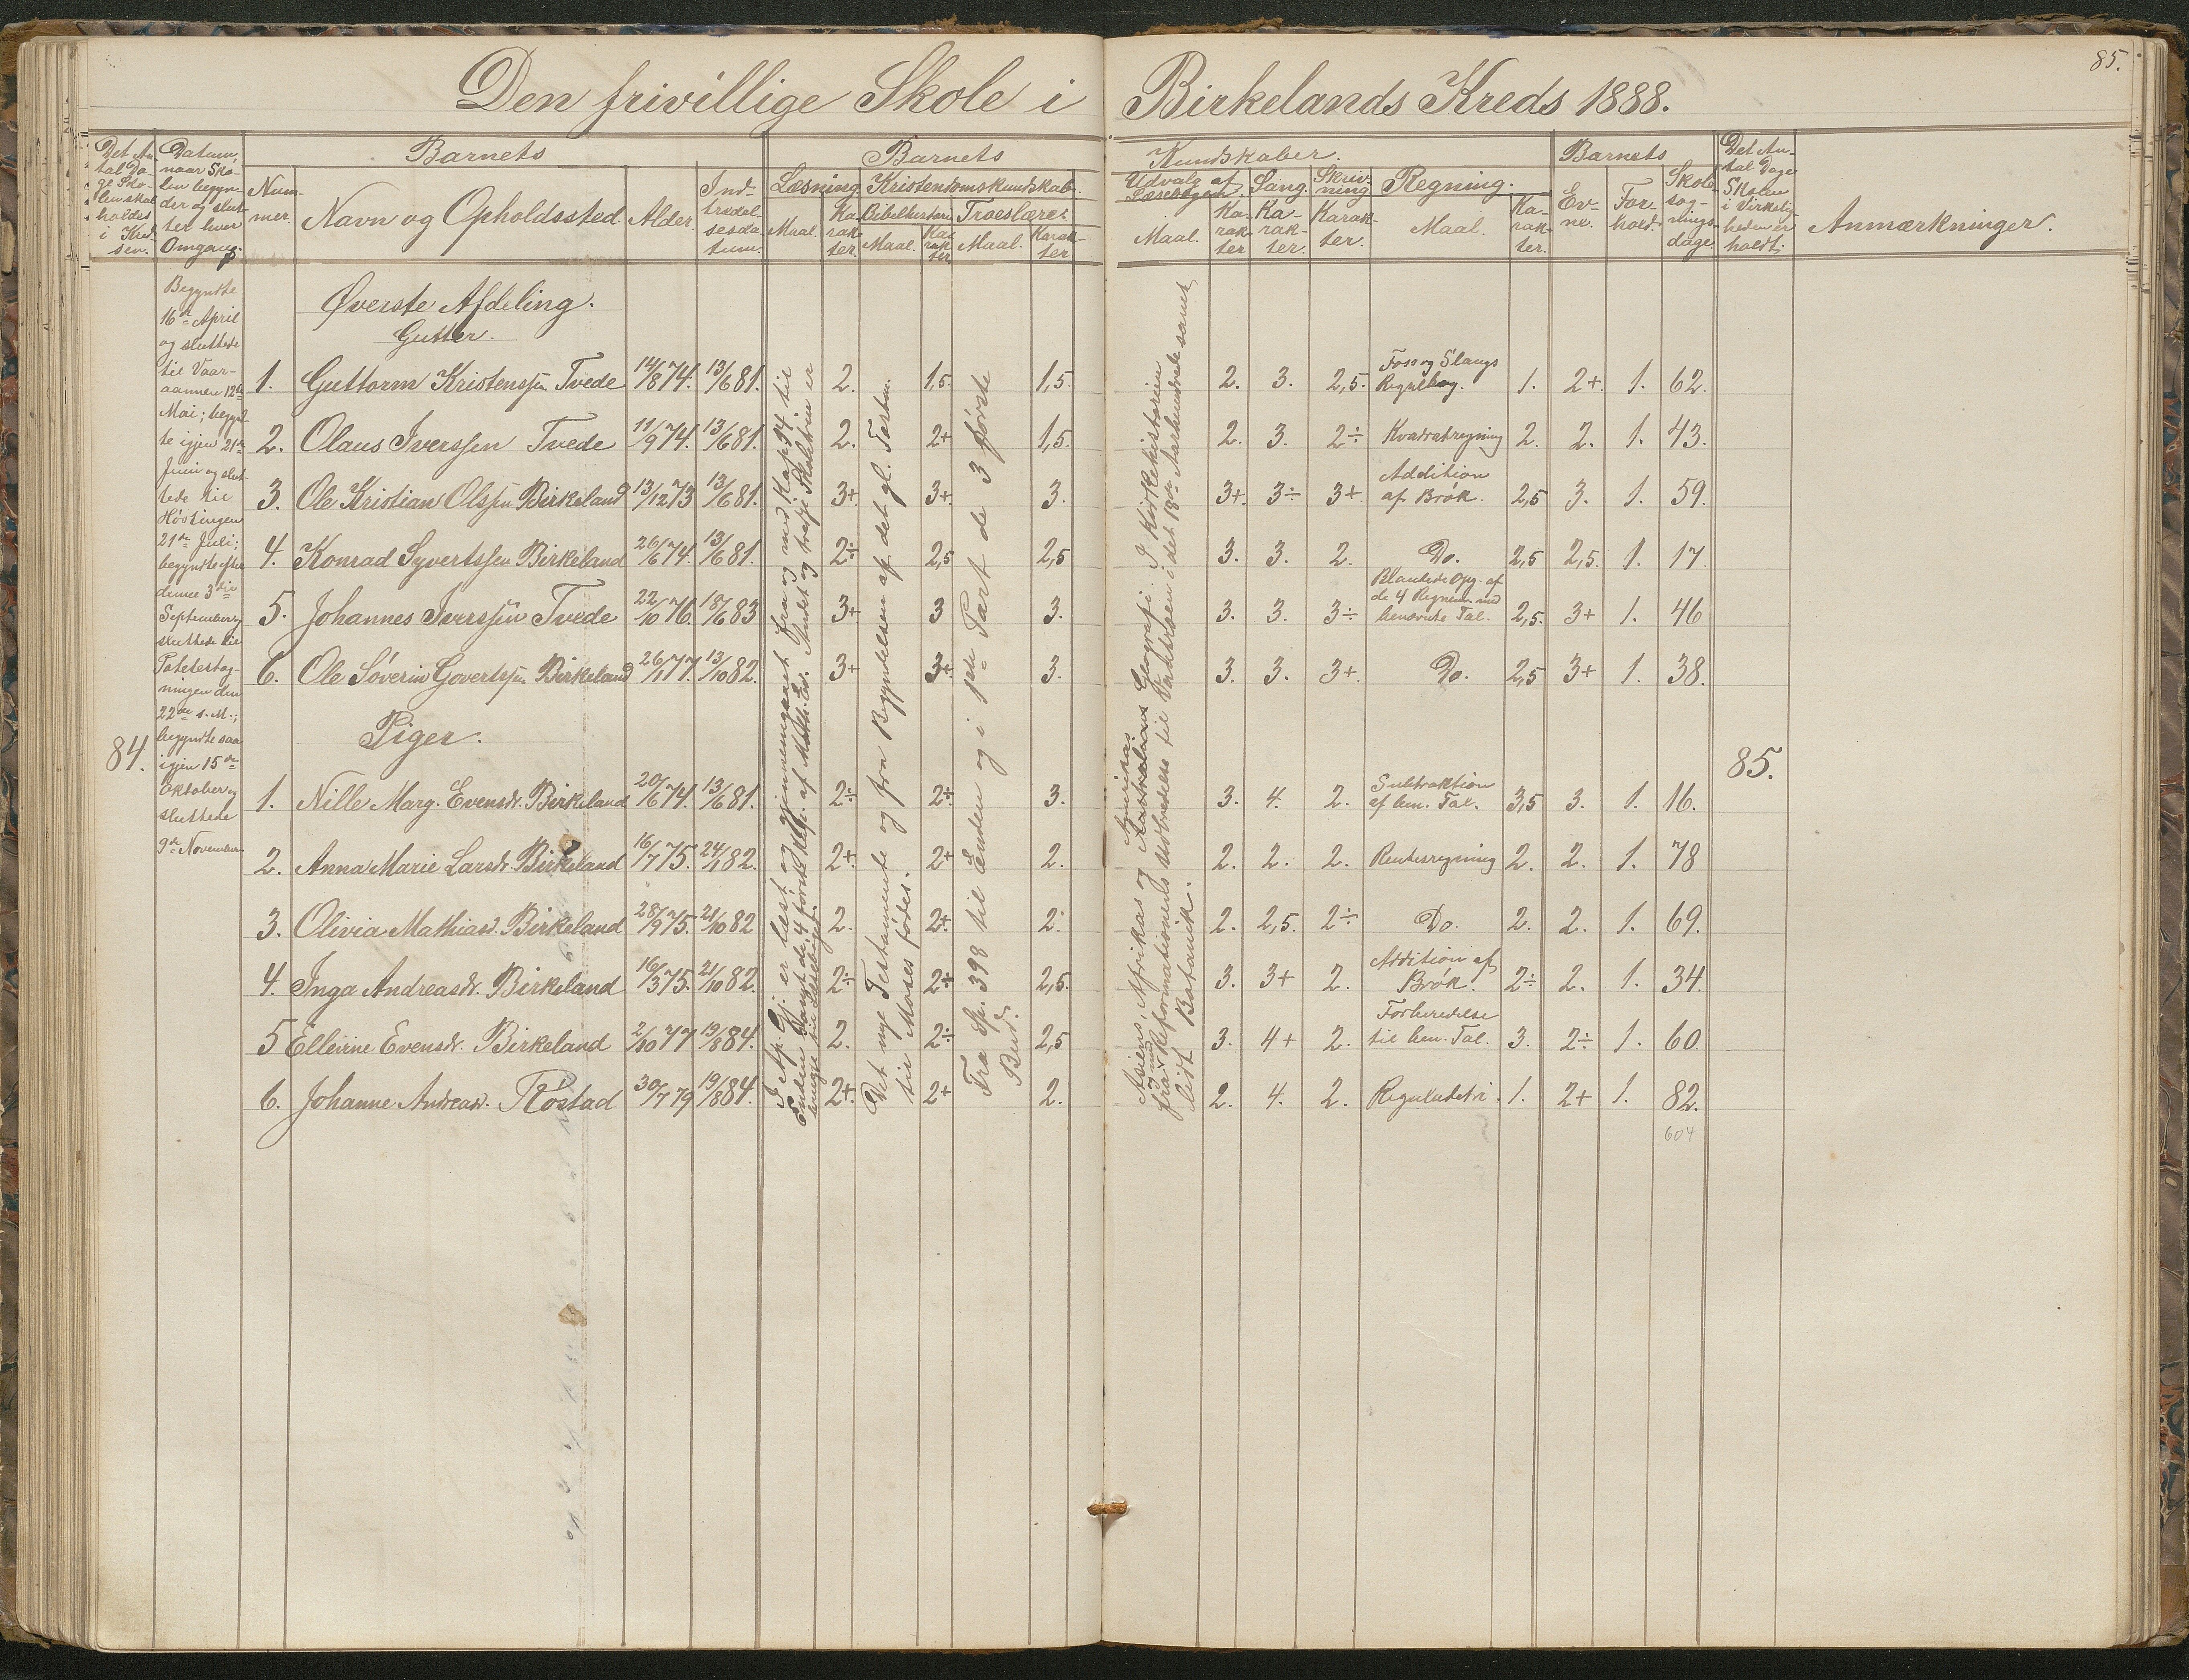 85.
Den frivillige Skole i Birkelands Kreds 1888.
Det An-
tal Da-
ge Sko-
len skal
holdes
i Kred-
sen.
Datum,
naar Sko-
len begyn-
der og slut-
ter hver
Omgang.
Barnets
Num-
mer.
Navn og Opholdssted
Alder.
Ind-
trædel-
sesda-
tum.
Barnets Kundskaber.
Læsning
Maal.
Ka-
rak-
ter.
Kristendomskundskab.
Bibelhistorie
Maal.
Ka-
rak-
ter
Troeslære.
Maal.
Karak-
ter
Udvalg af
Læsebogen
Maal.
Ka-
rak-
ter
Sang.
Ka-
rak-
ter.
Skriv-
ning
Karak-
ter.
Regning.
Maal.
Ka-
rak-
ter.
Barnets
Ev-
ne.
For-
hold.
Skole-
søg-
nings-
dage.
Det An-
tal Dage
Skolen
i Virkelig-
heden er
holdt.
Anmærkninger.
84.
Begyndte
16de April
og sluttede
til Vaar-
aannen 12te
Mai; begynd-
te igjen 21de
Juni og slut-
tede til
Høvlingen
21de Juli;
begyndte efter
denne 3die
September og
sluttede til
Potetestag-
ningen den
22de s. M.;
begyndte saa
igjen 15de
Oktober og
sluttede
9de November
Øverste Afdeling.
Gutter.
1. Guttorm Kristenssen Tvede 14/8 74. 13/6 81. 2. 1,5 1,5. 2. 3. 2,5. Foss og Slangs Regulbog. 1. 2+. 1. 62.
2. Olaus Iverssen Tvede 11/9 74. 13/6 81. 2. 2+ 1,5. 2. 3. 2÷ Kvadratregning 2. 2. 1. 43.
3. Ole Kristian Olssen Birkeland 13/12 73 13/6 81. 3+. 3+. 3. 3+. 3÷ 3+. Addition af Brøk. 2,5 3. 1. 59.
4. Konrad Syvertssen Birkeland 26/6 74. 13/6 81. 2÷ 2,5 2,5 3. 3. 2. Do. 2,5 2,5. 1. 17.
5. Johannes Iverssen Tvede 22/10 76. 18/6 83 3+ 3 3. 3. 3. 3÷ Blandede Opg. af de 4 Regnem. med benævnte Tal. 2,5. 3+ 1. 46
6. Ole Søverin Govertssen Birkeland 26/1 77. 13/10 82. 3+ 3+ 3. 3. 3. 3+. Do. 2,5 3+ 1. 38.
Piger.
1. Nille Marg. Evensdr. Birkeland 20/6 74. 13/6 81. 2÷ 2÷ 3. 3. 4. 2. Subtraktion af ben. Tal. 3,5 3. 1. 16.
2. Anna Marie Larsdr. Birkeland 16/7 75. 24/1 82. 2+. 2+ 2. 2. 2. 2. Rentesregning 2. 2. 1. 78
3. Olivia Mathiasd. Birkeland 28/9 75. 21/10 82 2. 2+. 2. 2. 2,5. 2÷ Do. 2. 2. 1. 69.
4. Inga Andreasdr. Birkeland 16/3 75. 21/10 82. 2÷ 2÷ 2,5. 3. 3+ 2. Addition af Brøk. 2÷ 2. 1. 34.
5 Ellevine Evensdr. Birkeland 2/10 77 19/8 84. 2. 2÷ 2,5 3. 4+ 2. Forberedelse til ben. Tal. 3. 2÷ 1. 60.
6. Johanne Andreasd. Røstad 30/7 79 19/8 84. 2+. 2+ 2. 2. 4. 2. Reguladetri. 1. 2+ 1. 82.
604
85.
I Ap. Gj. er læst og gjennemgaaet fra og med Kap. 14 til
Enden samt de 4 første Kap. af Matth. Ev. Andet og tredje Skoletrin er
brugt til Læsebogen.
Det nye Testamente og fra Begyndelsen af det gl. Testm.
til Moses fødes.
Fra Sp. 398 til Enden og i 1ste Part de 3 første
Bud.
Asiens, Afrikas og Amerikas Australiens Geografi. I Kirkehistorien
fra og med Reformationens Udbredelse til Vandstaden i det 18de Aarhundrede samt
lidt Botanik.